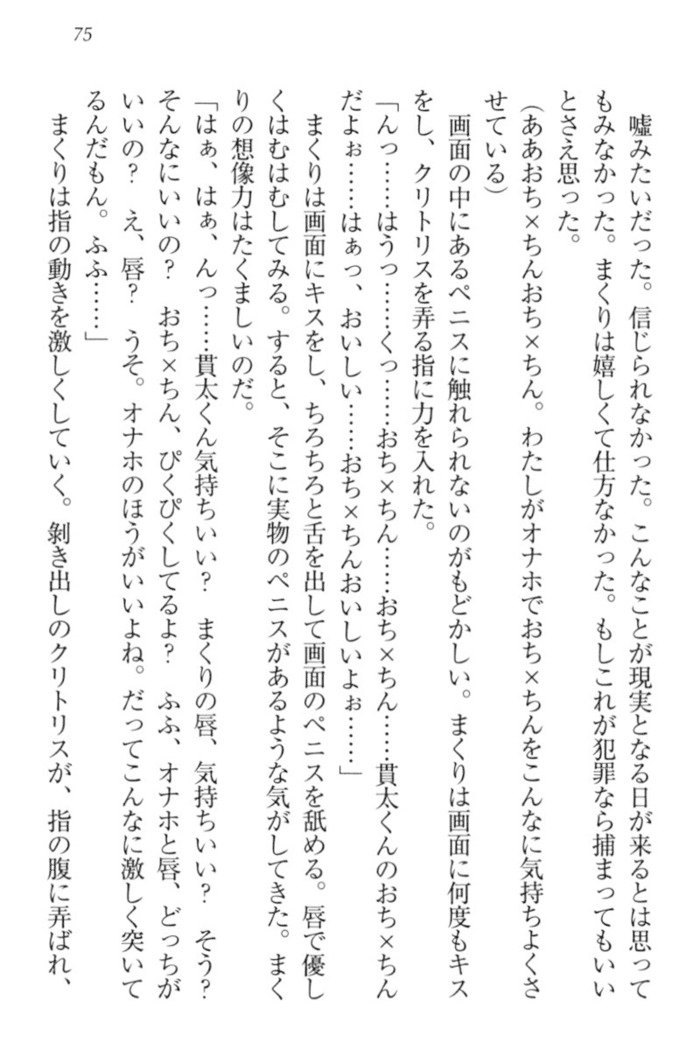 75
嘘みたいだった。信じられなかった。こんなことが現実となる日が来るとは思って
もみなかった。まくりは嬉しくて仕方なかった。もしこれが犯罪なら捕まってもいい
とさえ思った。
(ああおち×ちんおち×ちん。わたしがオナホでおち×ちんをこんなに気持ちよくさ
せている)
画面の中にあるペニスに触れられないのがもどかしい。まくりは画面に何度もキス
をし、クリトリスを弄る指に力を入れた。
「んっ……はうっ……くっ……おち×ちん……おち×ちん……貫太くんのおち×ちん
だよぉ……はぁっ、おいしい……おち×ちんおいしいよぉ……」
まくりは画面にキスをし、ちろちろと舌を出して画面のペニスを舐める。唇で優し
くはむはむしてみる。すると、そこに実物のペニスがあるような気がしてきた。まく
りの想像力はたくましいのだ。
「はぁ、はぁ、んっ……貫太くん気持ちいい？　まくりの唇、気持ちいい？　そう？
そんなにいいの？　おち×ちん、ぴくぴくしてるよ？　ふふ、オナホと唇、どっちが
いいの？　え、唇？　うそ。オナホのほうがいいよね。だってこんなに激しく突いて
るんだもん。ふふ……」
まくりは指の動きを激しくしていく。剝き出しのクリトリスが、指の腹に弄ばれ、